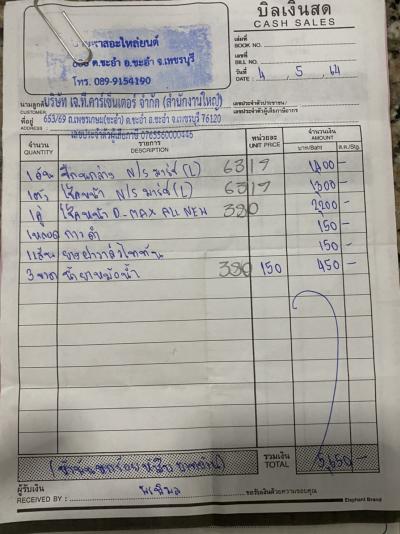 บิลเงินสด
CASH SALES
อะไหล่ยนต์
ต.ชะอำ อ.ชะอำ จ.เพชรบุรี
โทร. 089-9154190
เล่มที่
BOOK NO.
เลขที่
BILL NO.
วันที่ 4 5 64
DATE
นามลูกค้า บริษัท เจ.ที.คาร์เซ็นเตอร์ จำกัด (สำนักงานใหญ่)
CUSTOMER
ที่อยู่ 653/69 ถ.เพชรเกษม(ชะอำ) ต.ชะอำ อ.ชะอำ จ.เพชรบุรี 76120
ADDRESS
เลขประจำตัวผู้เสียภาษี 0765560000445
เลขประจำตัวประชาชน/
เลขประจำตัวผู้เสียภาษีอากร
จำนวน รายการ หน่วยละ จำนวนเงิน
QUANTITY DESCRIPTION UNIT PRICE AMOUNT
บาท/Baht ส.ต./Stg.
1 อัน ปีกนกล่าง N/S มาร์ช (L) 6319 1,400 -
1 ตัว โช้คหน้า N/S มาร์ช (L) 6319 1,300 -
1 คู่ โช้คหน้า D-MAX ALL NEW 380 2,200 -
1 หลอด กาวดำ 150 -
1 เส้น 150 -
3 ขวด น้ำยาหม้อน้ำ 380 150 450 -
(ห้าพันหกร้อยห้าสิบบาทถ้วน) รวมเงิน 5,650 -
TOTAL
ผู้รับเงิน
RECEIVED BY ขอรับเงินด้วยความขอบคุณ
Elephant Brand